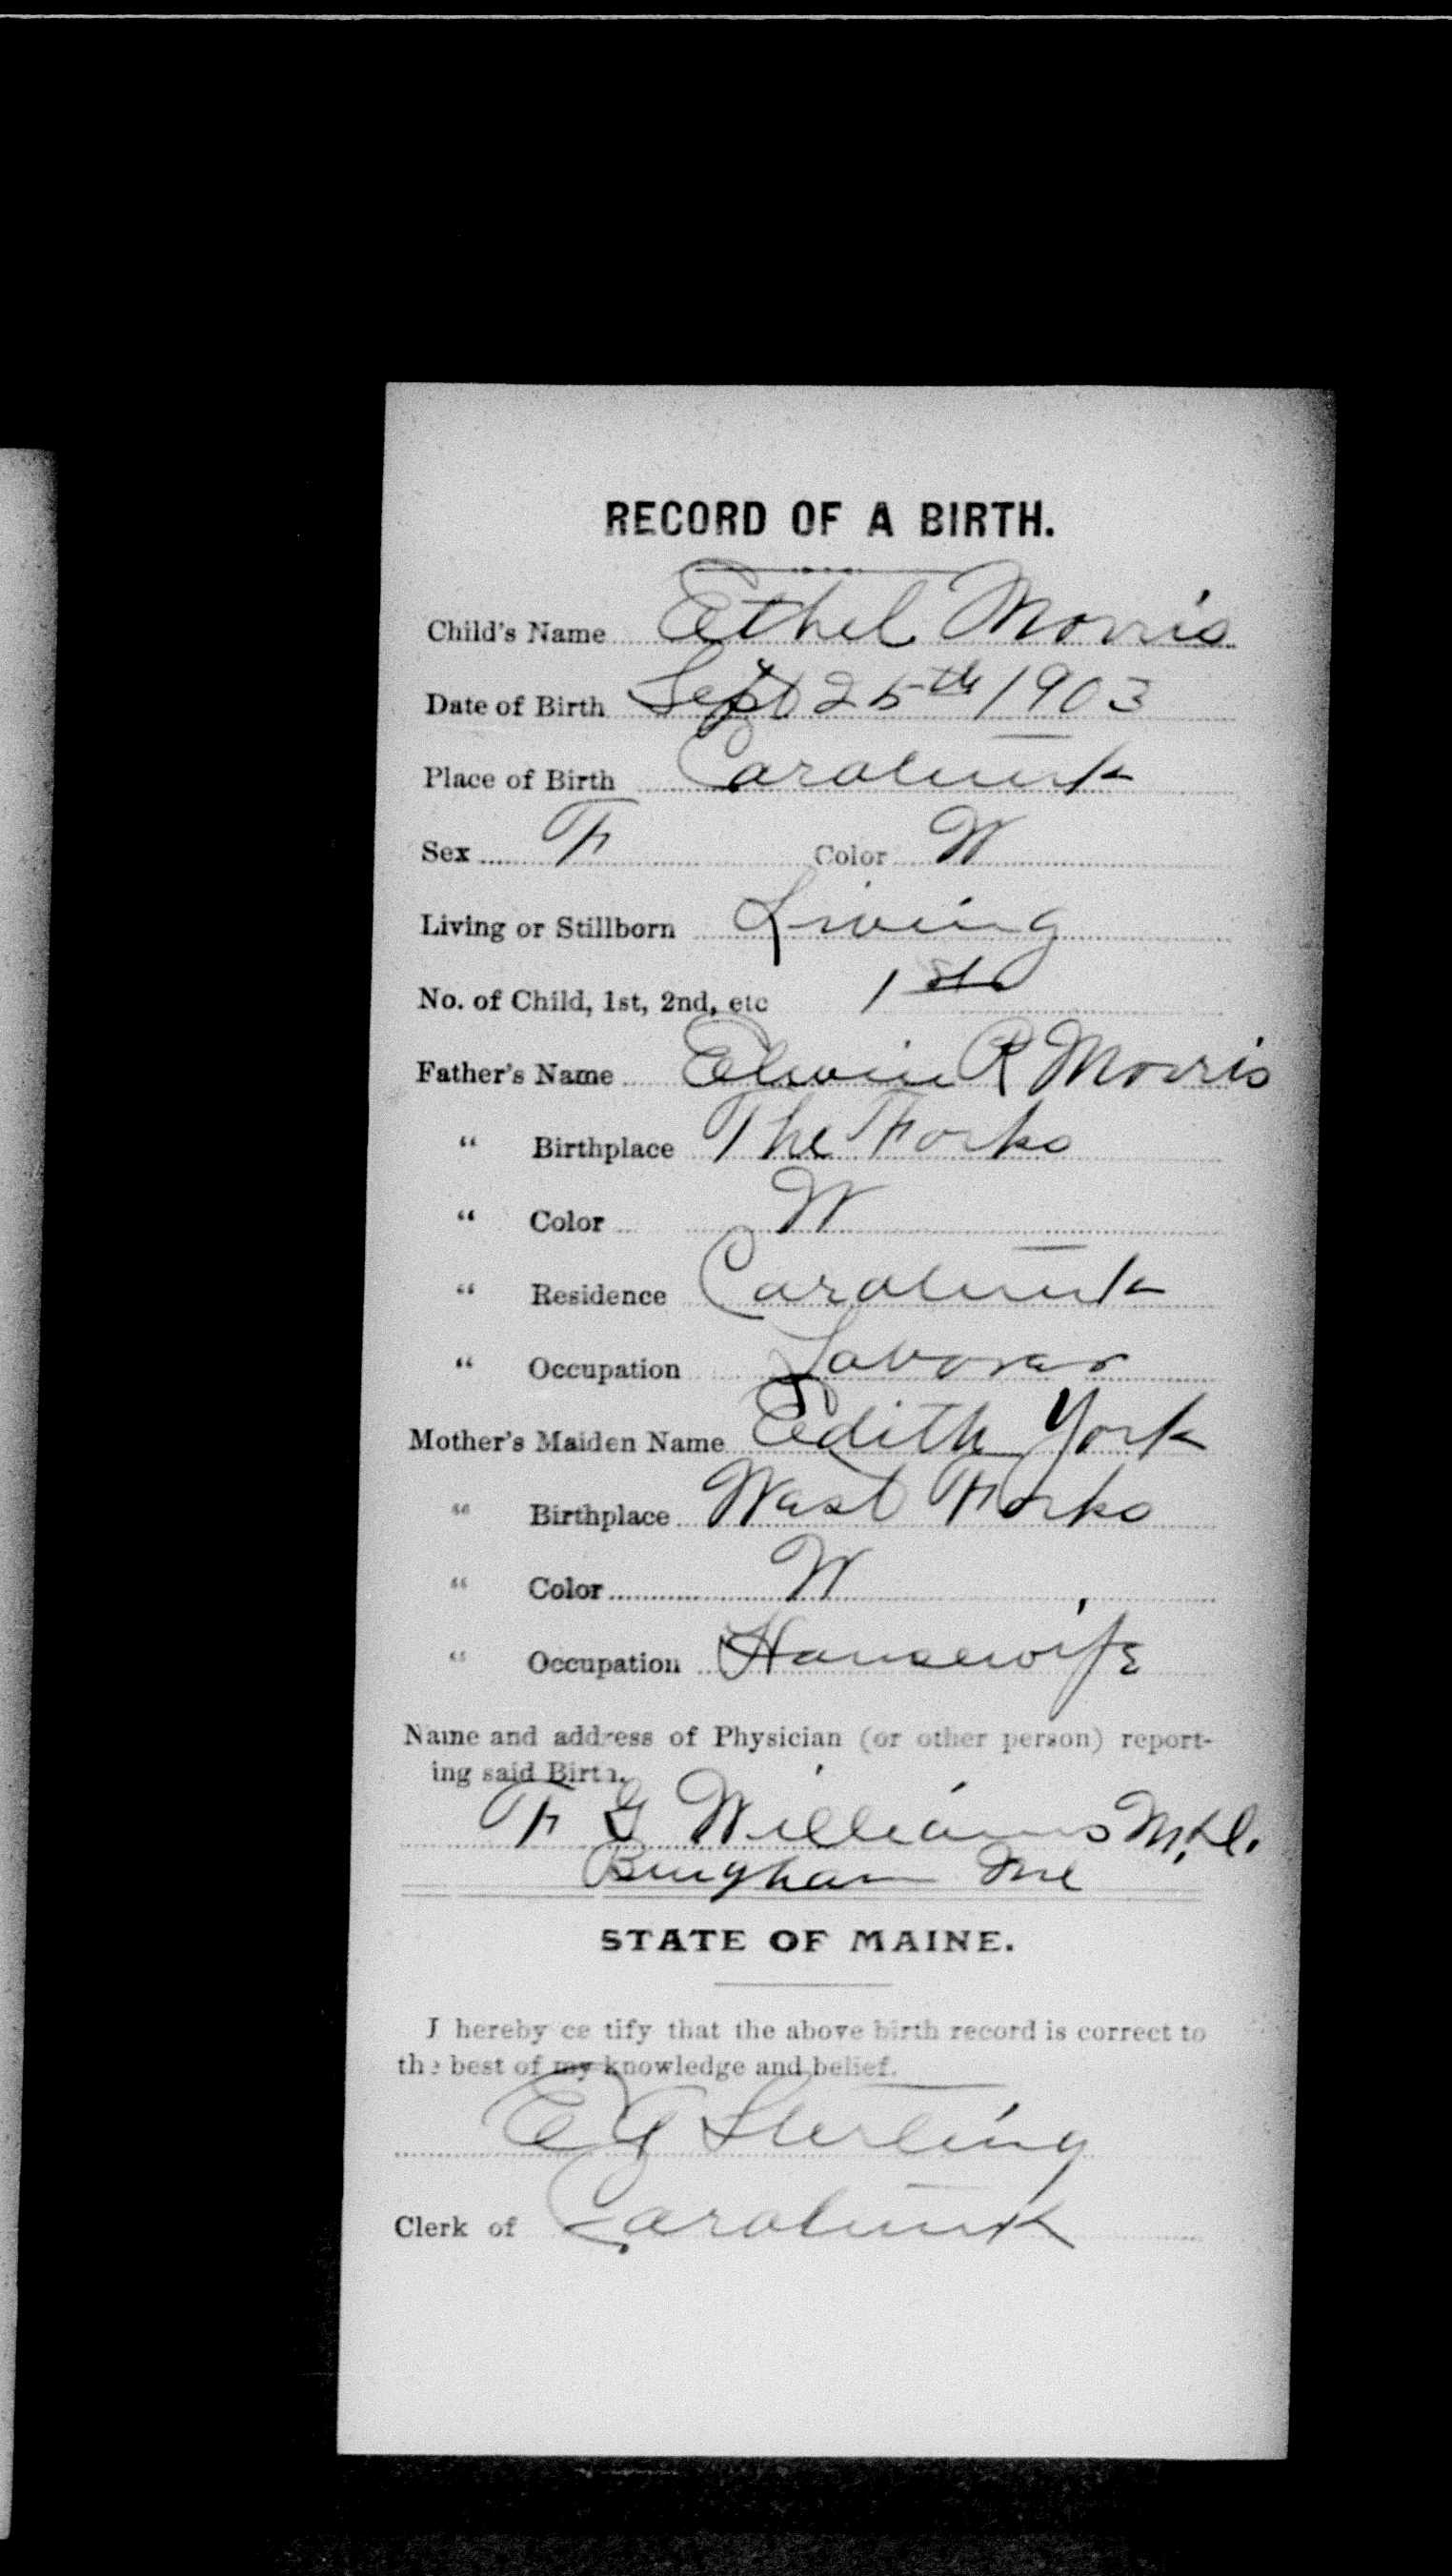 RECORD OF A BIRTH.
Child's Name Ethel Morris
Date of Birth Sept 25th 1903
Place of Birth Caratunk
Sex F Color W
Living or Stillborn Living
No. of Child, 1st, 2nd, etc 1st
Father's Name Elwin R Morris
" Birthplace The Forks
" Color W
" Residence Caratunk
" Occupation Laborer
Mother's Maiden Name Edith York
" Birthplace West Forks
" Color W
" Occupation Housewife
Name and address of Physician (or other person) report-
ing said Birth.
F G Williams M.D.
Bingham Me
STATE OF MAINE.
I hereby certify that the above birth record is correct to
the best of my knowledge and belief.
E G Sterling
Clerk of Caratunk